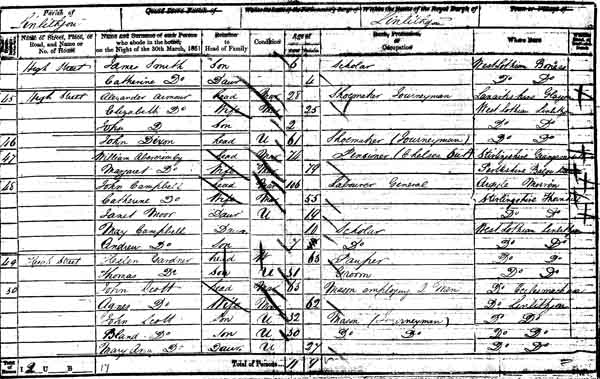 Parish of
Linlithgow
Quoad Sacra Parish of
Within the Limits of the Parliamentary Burgh of
Within the Limits of the Royal Burgh of
Linlithgow
Town or Village of
Name of Street, Place, or Road, and Name or No. of House
Name and Surname of each Person who abode in the house, on the Night of the 30th March, 1851
Relation to Head of Family
Condition
Age of
Rank, Profession, or Occupation
Where Born
High Street James Smith Son 6 Scholar Westlothian
Catherine Do Daur 4 Do Do
45 High Street Alexander Armour Head Mar 28 Shoemaker Journeyman Lanarkshire
Elizabeth Do Wife Mar 25 West Lothian
John D Son 2 Do Do
46 John Dixon Head U 61 Shoemaker (Journeyman) Do Do
47 William Abercromby Head Mar 76 Pensioner (Chelsea Stirlingshire
Margret Do Wife Mar 79 Perthshire
48 John Campbell Head Mar 106 Labourer General Argyle
Catherine Do Wife Mar 55 Stirlingshire
Janet Moor Daur U 19 Do Do
May Campbell Daur 10 Scholar West Lothian Linlithgow
Andrew Do Son 7 Do Do Do
49 High Street Helen Gardner Head W 63 Pauper Do Do
Thomas Do Son U 31 Groom Do Do
50 John Scott Head Mar 63 Mason employing 2 Men Do
Agnes Do Wife Mar 62 Do Linlithgow
John Scott Son U 32 Mason (Journeyman) Do Do
Bland Do Son U 30 Do Do Do Do
Mary Ann Do Daur U 27 Do Do
Total of Houses I 2 U B 17 Total of Persons 11 9